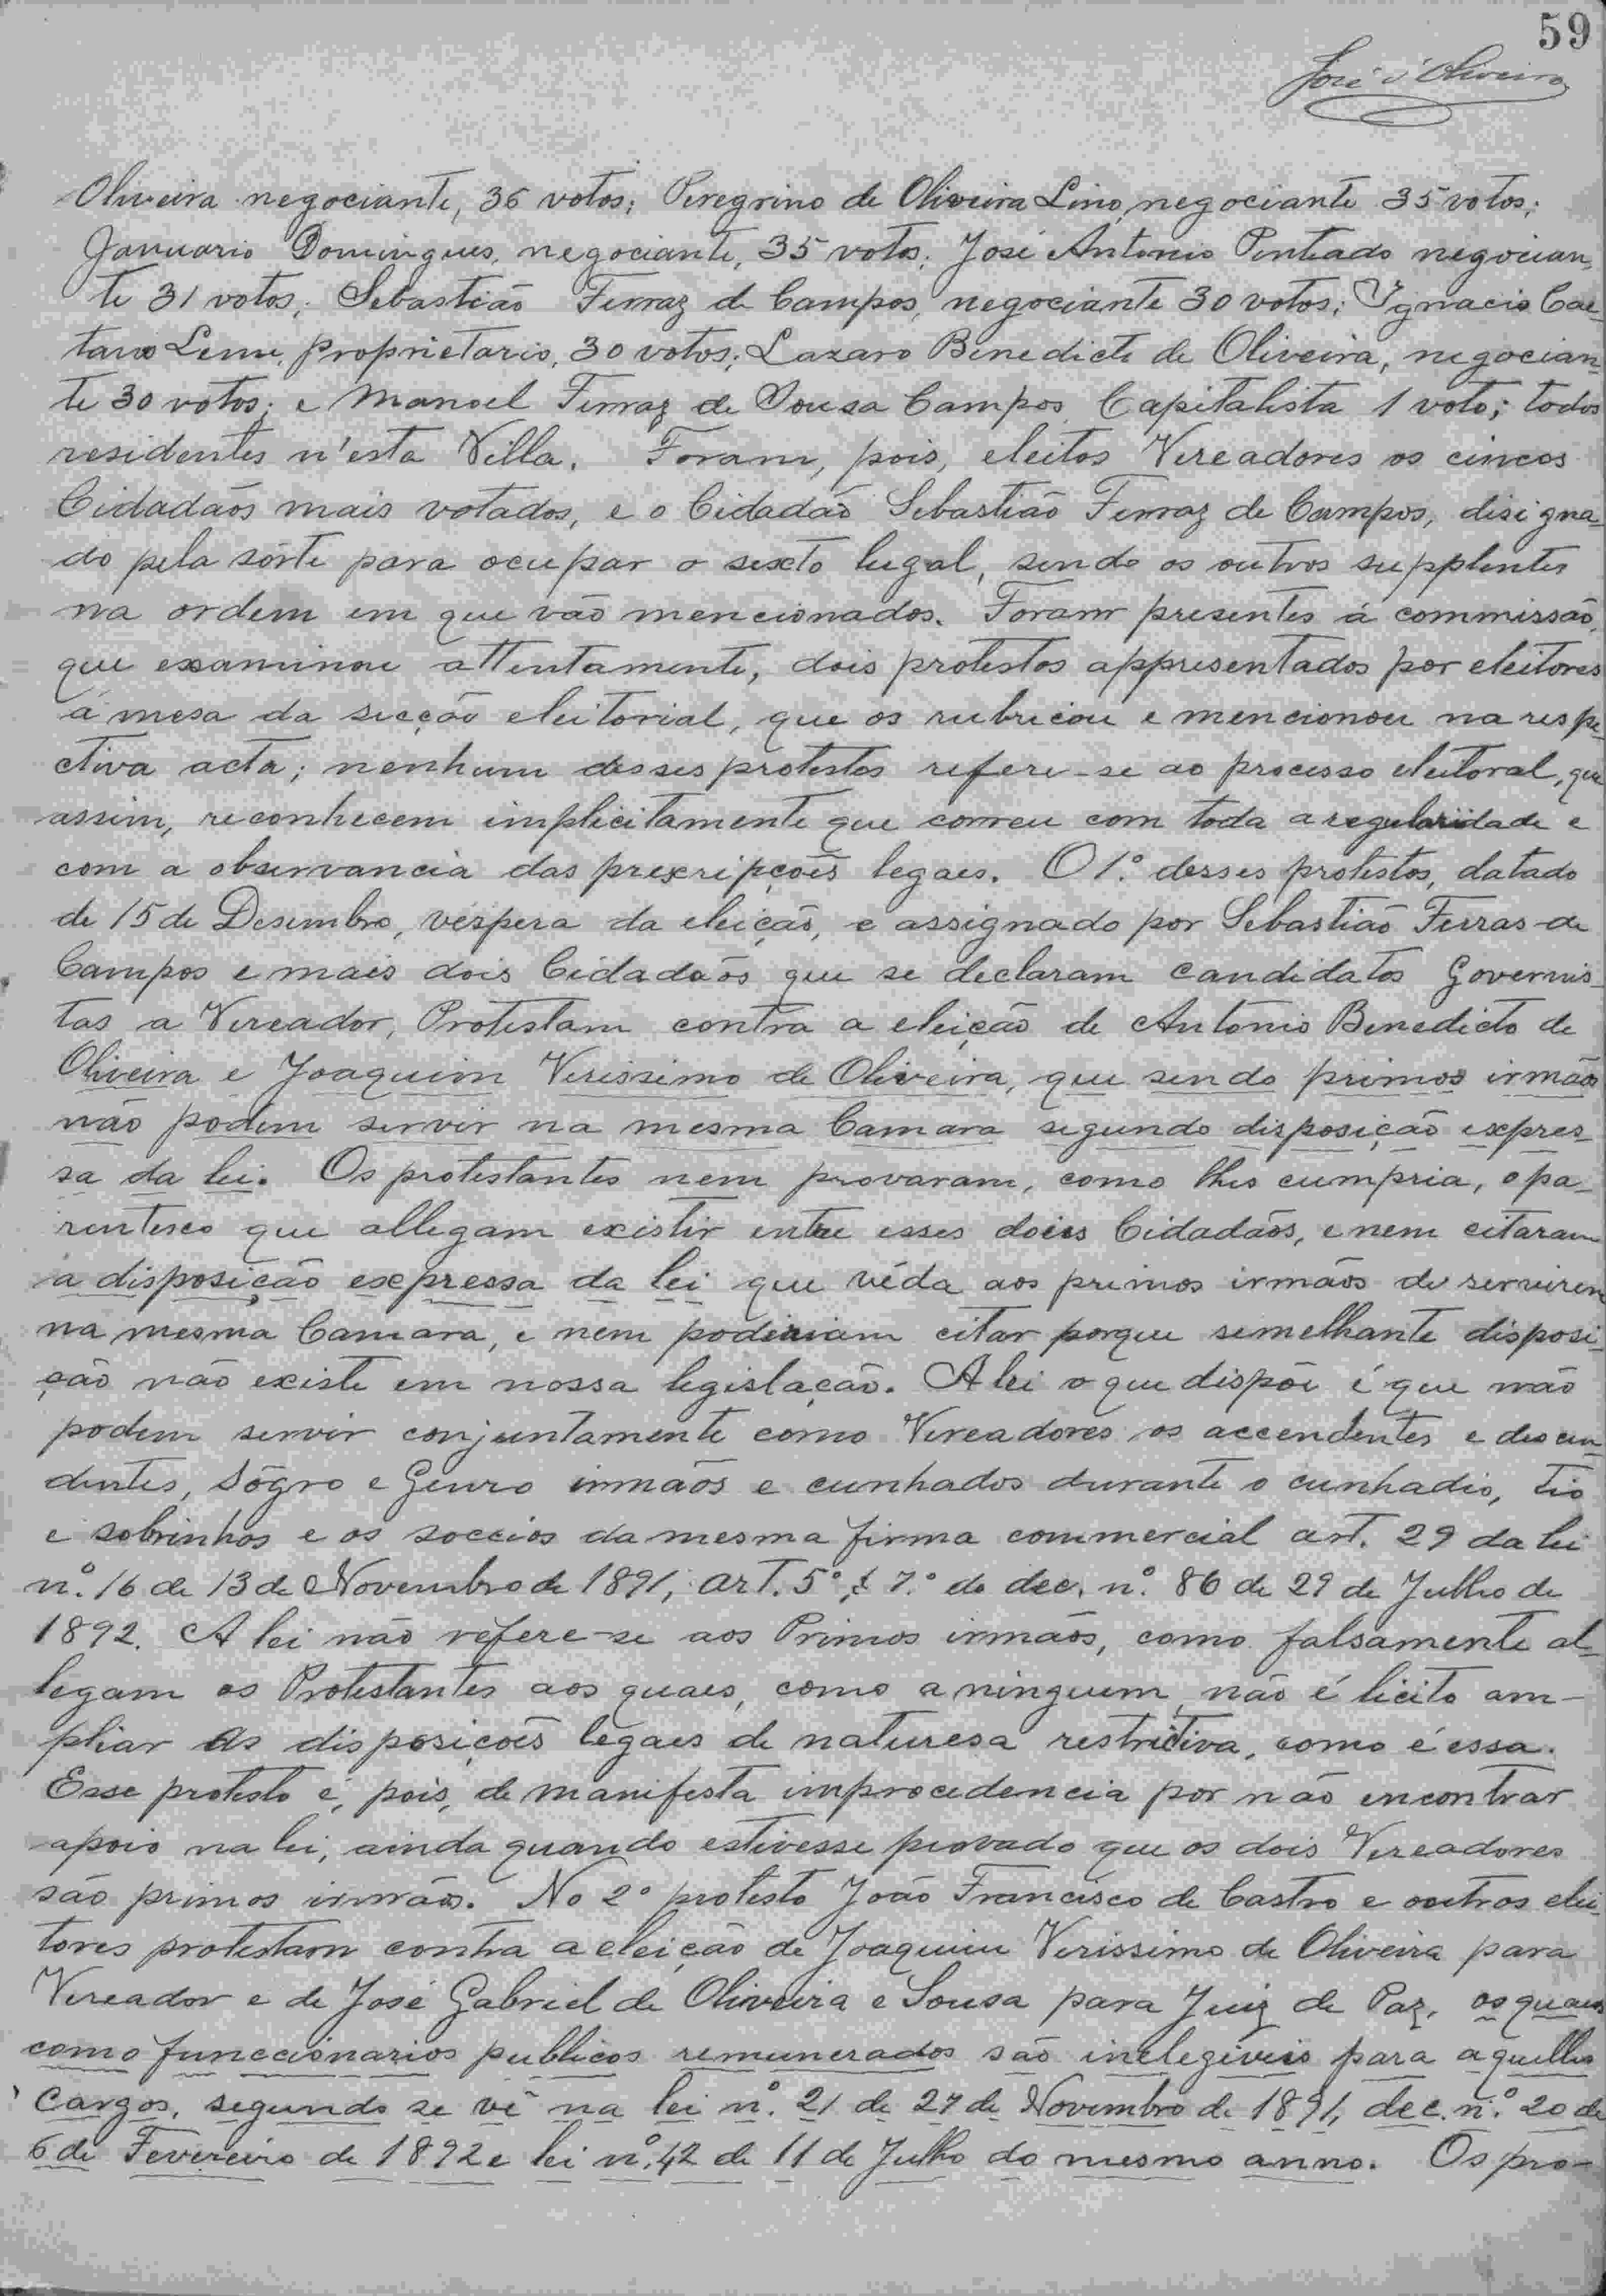 59
José d'Oliveira
Oliveira negociante, 36 votos; Peregrino de Oliveira Lino, negociante 35 votos;
Januario Domingues, negociante, 35 votos; José Antonio Penteado negocian-
te 31 votos; Sebastião Ferraz de Campos, negociante 30 votos; Ygnacio Cae-
tano Leme, proprietario, 30 votos; Lazaro Benedicto de Oliveira, negocian-
te 30 votos; e Manoel Ferraz de Sousa Campos Capitalista 1 voto; todos
residentes n'esta Villa. Foram, pois, eleitos Vereadores os cincos
Cidadãos mais votados, e o Cidadão Sebastião Ferraz de Campos, disigna-
do pela sórte para ocupar o sexto lugal, sendo os outros supplentes
na ordem em que vão mencionados. Foram presentes á commissão,
que examinou attentamente, dois protestos appresentados por eleitores
á mesa da secção eleitorial, que os rubricou e mencionou na respe-
ctiva acta; nenhum desses protestos refere-se ao processo eleitoral, que
assim, reconhecem implicitamente que correu com toda a regularidade e
com a observancia das prexripções legaes. O 1.º desses protestos, datado
de 15 de Desembro, véspera da eleição, e assignado por Sebastião Ferras de
Campos e mais dois Cidadãos que se declaram candidatos Governis-
tas a Vereador, Protestam contra a eleição de Antonio Benedicto de
Oliveira e Joaquim Verissimo de Oliveira, que sendo primos irmãos
não podem servir na mesma Camara segundo disposição expres-
sa da lei. Os protestantes nem provaram, como lhes cumpria, o pa-
rentesco que allegam existir entre esses dois Cidadãos, e nem citaram
a disposição expressa da lei que véda aos primos irmãos de servirem
na mesma Camara, e nem poderiam citar porque semelhante disposi-
ção não existe em nossa legislação. A lei o que dispõe é que não
podem servir conjuntamente como Vereadores os accendentes e descen-
dentes, Sôgro e Genro irmãos e cunhados durante o cunhadio, tio
e sobrinhos e os soccios da mesma firma commercial art. 29 da lei
nº. 16 de 13 de Novembro de 1891, art. 5º, § 7.º do dec. nº. 86 de 29 de Julho de
1892. A lei não refere-se aos Primos irmãos, como falsamente al-
legam os Protestantes aos quaes, como a ninguem, não é licito am-
pliar as disposições legaes de naturesa restrictiva, como é essa.
Esse protesto é, pois, de manifesta improcedencia por não encontrar
apoio na lei, ainda quando estivesse provado que os dois Vereadores
são primos irmãos. No 2º protesto João Francisco de Castro e outros elei-
tores protestam contra a eleição de Joaquim Verissimo de Oliveira para
Vereador e de José Gabriel de Oliveira e Sousa para Juiz de Paz, os quaes
como funccionarios publicos remunerados são inelegiveis para aquelles
Cargos, segundo se vê na lei nº. 21 de 27 de Novembro de 1891, dec. nº. 20 de
6 de Fevereiro de 1892 e lei nº. 42 de 11 de Julho do mesmo anno. Os pro-